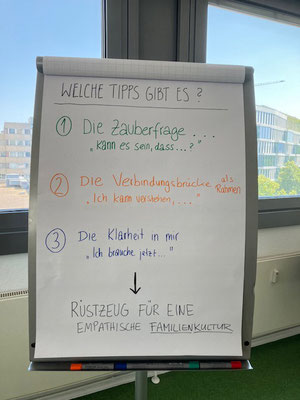 WELCHE TIPPS GIBT ES?
① Die Zauberfrage . . .
„Kann es sein, dass...?"
② Die Verbindungsbrücke als Rahmen
„Ich kann verstehen,..."
③ Die Klarheit in mir
„Ich brauche jetzt..."
↓
RÜSTZEUG FÜR EINE
EMPATHISCHE FAMILIENKULTUR